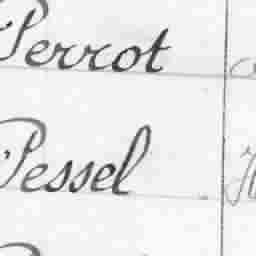 Perrot
Pessel